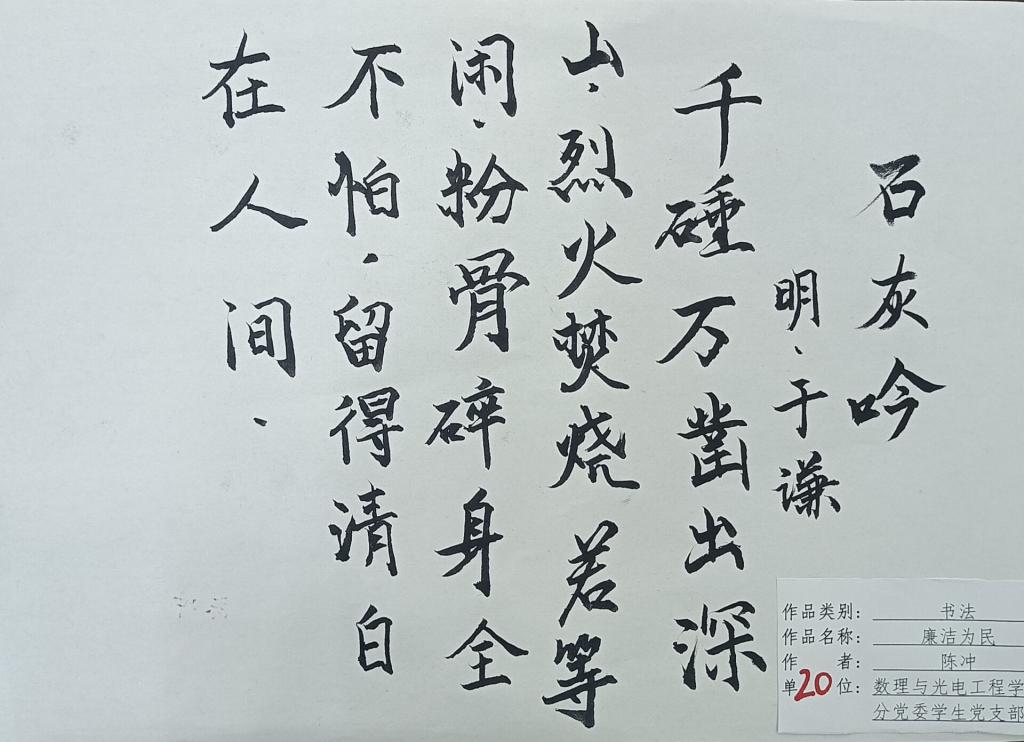 石灰吟
明·于谦
千硾万凿出深
山.烈火焚烧若等
闲.粉骨碎身全
不怕.留得清白
在人间.
作品类别：书法
作品名称：廉洁为民
作者：陈冲
单位：数理与光电工程学
分党委学生党支部
20